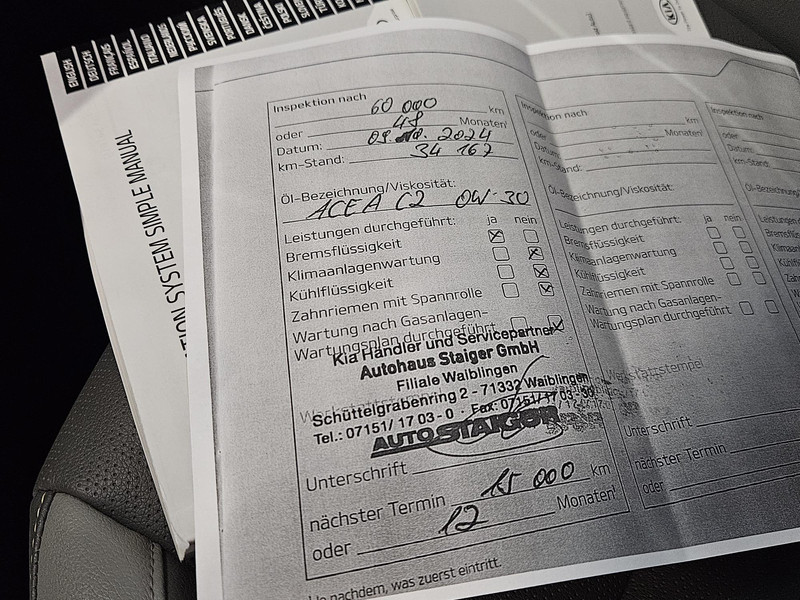 ENGLISH
DEUTSCH
FRANÇAIS
ESPAÑOL
ITALIANO
SVENSKA
ČEŠTINA
TION SYSTEM SIMPLE MANUAL
KIA
Inspektion nach 60 000 km
oder 48 Monaten¹
Datum: 09. 10. 2024
km-Stand: 34 167
Öl-Bezeichnung/Viskosität:
ACEA C2 0W-30
Leistungen durchgeführt: ja nein
Bremsflüssigkeit
Klimaanlagenwartung
Kühlflüssigkeit
Zahnriemen mit Spannrolle
Wartung nach Gasanlagen-
Wartungsplan durchgeführt
Kia Händler und Servicepartner
Autohaus Staiger GmbH
Filiale Waiblingen
Schüttelgrabenring 2 - 71332 Waiblingen
Tel.: 07151/ 17 03 - 0 · Fax: 07151/17 03 - 30
AUTO STAIGER
Unterschrift
nächster Termin 15 000 km
oder 12 Monaten¹
Je nachdem, was zuerst eintritt.
Inspektion nach km
oder Monaten¹
Datum:
km-Stand:
Öl-Bezeichnung/Viskosität:
Leistungen durchgeführt: ja nein
Bremsflüssigkeit
Klimaanlagenwartung
Kühlflüssigkeit
Zahnriemen mit Spannrolle
Wartung nach Gasanlagen-
Wartungsplan durchgeführt
Werkstattstempel
Unterschrift
nächster Termin
oder
Inspektion nach
oder
Datum:
km-Stand:
Öl-Bezeichnung
Leistungen
Bremsflüssi
Klimaanla
Kühlflüs
Zahnrie
Wartu
Wart